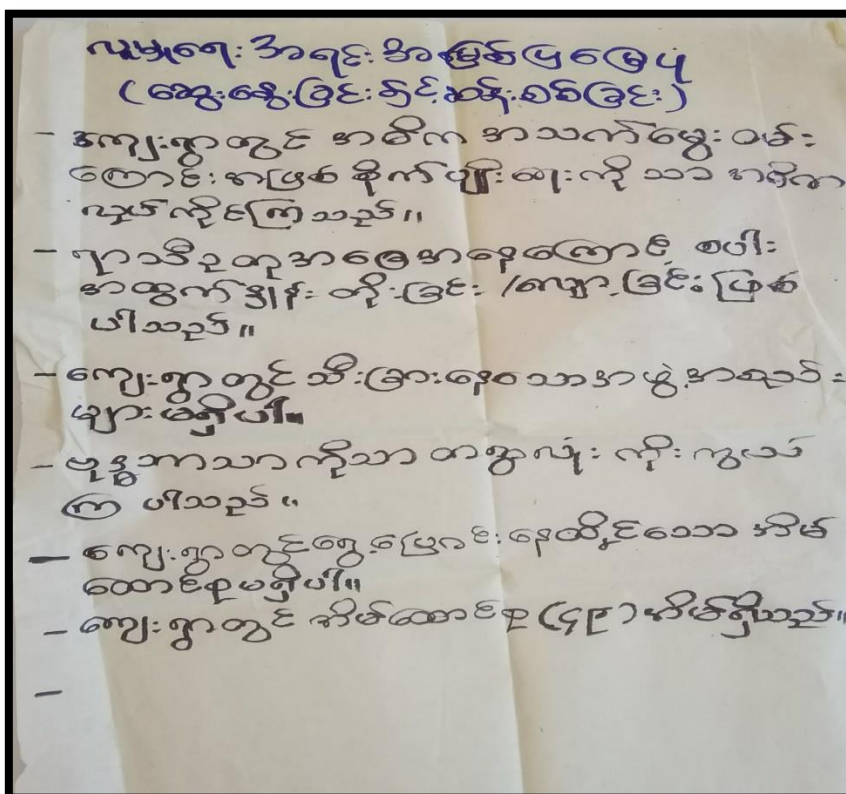 လူမှုရေး အရင်းအမြစ်ပြမြေပုံ
(ဆွေးနွေးခြင်းနှင့်ဆန်းစစ်ခြင်း)
- ကျေးရွာတွင် အဓိက အသက်မွေး ဝမ်း
ကြောင်းအဖြစ် စိုက်ပျိုးရေးကို သာ အဓိက
လုပ်ကိုင်ကြသည်။
- ရာသီဥတုအခြေအနေကြောင့် စပါး
အထွက်နှုန်း တိုးခြင်း /လျော့ခြင်း ဖြစ်
ပါသည်။
- ကျေးရွာတွင် သီးခြားနေသောအဖွဲ့အစည်း
များ မရှိပါ။
- ဗုဒ္ဓဘာသာကိုသာ တစ်ရွာလုံး ကိုးကွယ်
ကြ ပါသည်။
- ကျေးရွာတွင်ရွှေ့ပြောင်းနေထိုင်သော အိမ်
ထောင်စုမရှိပါ။
- ကျေးရွာတွင် အိမ်ထောင်စု (၄၉) အိမ်ရှိသည်။
-